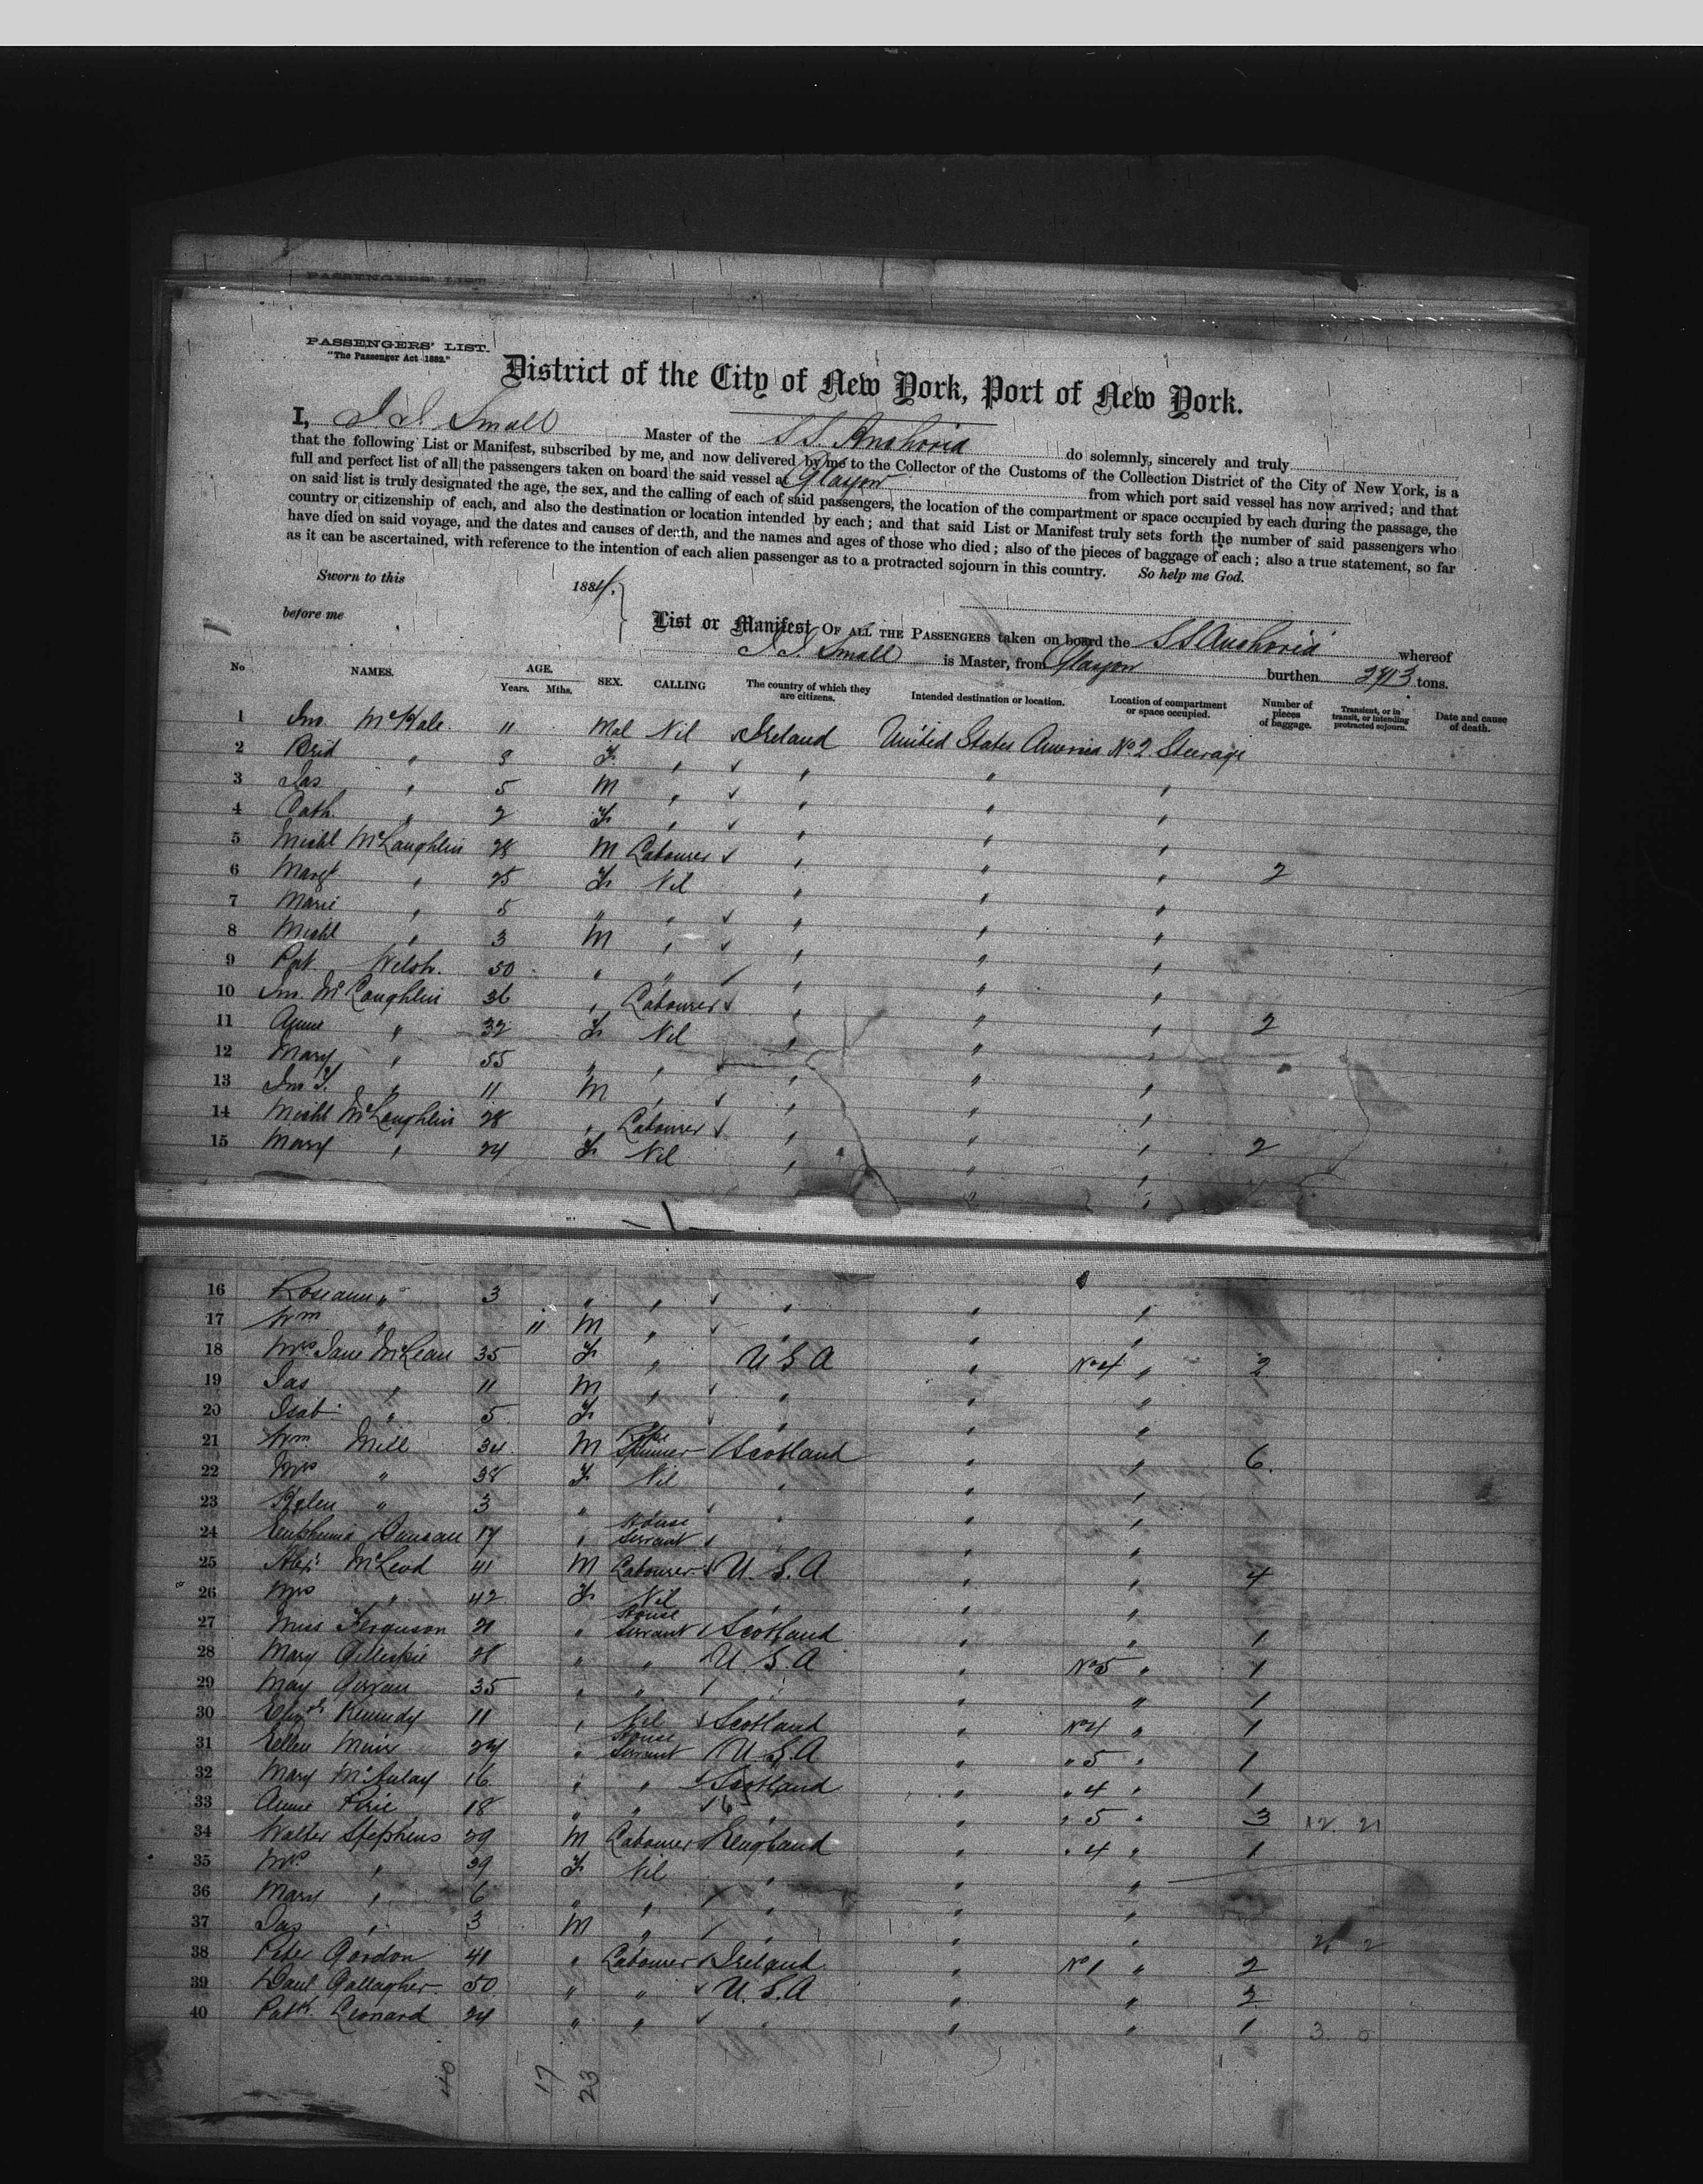 PASSENGERS' LIST.
PASSENGERS' LIST.
"The Passenger Act 1882."
District of the City of New York, Port of New York.
I, J. J. Small Master of the S.S. Anchoria do solemnly, sincerely and truly
that the following List or Manifest, subscribed by me, and now delivered by me to the Collector of the Customs of the Collection District of the City of New York, is a
full and perfect list of all the passengers taken on board the said vessel at Glasgow from which port said vessel has now arrived; and that
on said list is truly designated the age, the sex, and the calling of each of said passengers, the location of the compartment or space occupied by each during the passage, the
country or citizenship of each, and also the destination or location intended by each; and that said List or Manifest truly sets forth the number of said passengers who
have died on said voyage, and the dates and causes of death, and the names and ages of those who died; also of the pieces of baggage of each; also a true statement, so far
as it can be ascertained, with reference to the intention of each alien passenger as to a protracted sojourn in this country. So help me God.
Sworn to this 1884.
before me
List or Manifest OF ALL THE PASSENGERS taken on board the S S Anchoria whereof
J. J. Small is Master, from Glasgow burthen 2713 tons.
No NAMES. AGE. Years. Mths. SEX. CALLING The country of which they are citizens. Intended destination or location. Location of compartment or space occupied. Number of pieces of baggage. Transient, or in transit, or intending protracted sojourn. Date and cause of death.
1 Jno. McHale. 11 Mal Nil Ireland United States America No 2. Steerage
2 Brid " 8 F. " " " "
3 Jas " 5 M " " " "
4 Cath. " 2 F " " " "
5 Michl McLaughlin 28 M Labourer " " " 2
6 Margt " 25 F Nil " " "
7 Marie " 5 " " " " "
8 Michl " 3 M " " " "
9 Pat. Welsh. 50 " " " " "
10 Jno. McLaughlin 36 " Labourer " " " 2
11 Anne " 32 F Nil " " "
12 Mary " 55 " " " " "
13 Jno F. " 11 M " " " "
14 Michl McLaughlin 28 " Labourer " " " 2
15 Mary " 24 F Nil " " "
16 Roseann " 3 " " " " "
17 Wm " 11 M " " " "
18 Mrs Jane McLean 35 F " U S A " No 4 " 2
19 Jas " 11 M " " " "
20 Isab " 5 F " " "
21 Wm Mill 34 M Rope Spinner Scotland " " 6.
22 Mrs " 38 F Nil " " "
23 Helen " 3 " " "
24 Euphemia Duncan 17 " House Servant " "
25 Alexr McLeod 41 M Labourer U. S. A " " 4
26 Mrs " 42 F Nil " " "
27 Miss Ferguson 21 " House Servant Scotland " " 1
28 Mary Gillespie 28 " " U. S. A " No 5 " 1
29 May 35 " " " " 1
30 Elizth Kennedy 11 " Nil Scotland " No 4 " 1
31 Ellen Muir 24 " House Servant U. S. A " " 5 " 1
32 Mary McAulay 16 " " Scotland " " 4 " 1
33 Anne Pirie 18 " " " " " 5 " 3 12 21
34 Walter Stephens 29 M Labourer England " " 4 " 1
35 Mrs " 29 F Nil " " "
36 Mary " 6 " " " " "
37 Jas " 3 M " " " " 2
38 Peter Gordon 41 " Labourer Ireland " No 1 " 2
39 Danl Gallagher 50 " " U. S. A " " 2
40 Patk. Leonard 24 " " " " " 1 3 0
40 17 23